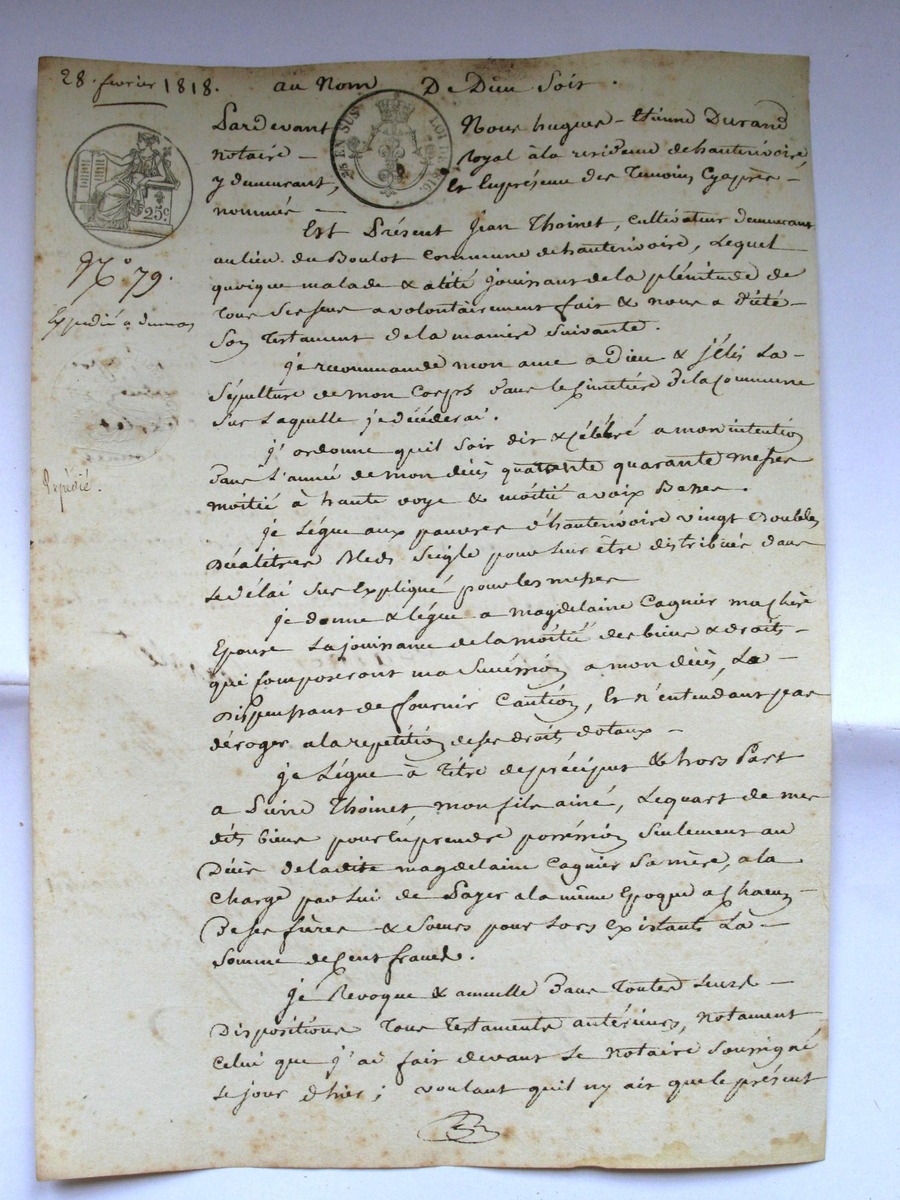 28. fevrier 1818. au Nom De Dieu Soit.
Pardevant Nous hugues - Etienne Durand
notaire - Royal à la residence de hauterivoire,
y demeurant, Et En présence des Temoins Cy après -
nommés -
2e EN SUS LOI DE 1816
25c.
N.o 79.
Est Présent Jean Thoinet, cultivateur demeurant
au lieu du Boulot Commune de hauterivoire, Lequel
quoique malade & alité jouissant de la plénitude de
tous ses sens a volontairement fait & nous a dicté -
Son Testament de la maniere Suivante.
Expedié
je recommande mon ame a Dieu & j'élis La -
Sépulture de mon Corps dans le Cimetière de la Commune
Sur Laquelle je décéderai.
j'ordonne quil soit dit & célébré a mon intention
Dans L'année de mon décès quarante quarante messes
moitié à haute voye & moitié a voix Basses.
Expedié.
je Légue aux pauvres d'hauterivoire vingt Doubles
Décalitres Bled Seigle pour leur être distribués dans
Le délai Sus Expliqué pour les messes
je donne & légue a magdelaine Cagnier ma chère
Epouse La jouissance de la moitié des biens & droits -
qui Composeront ma Succéssion a mon décès, La -
Dispensant de fournir Caution, Et n'entendant pas
déroger a la repetition de ses droits dotaux -
je Légue à titre de préciput & hors Part
a Pierre Thoinet mon fils ainé, Le quart de mes
dits biens pour en prendre posséssion Seulement au
Décès de ladite magdelaine Cagnier Sa mère, a la
Charge par Lui de Payer a la même Epoque a Chacun -
De ses frères & Sœurs pour Lors Existants La -
Somme de Cent francs.
je Revoque & annulle Dans Toutes Leurs -
Dispositions Tous Testaments antérieurs, notament
Celui que j'ai fait devant Le Notaire Soussigné
Le jour d'hier; voulant quil n'y ait que le présent